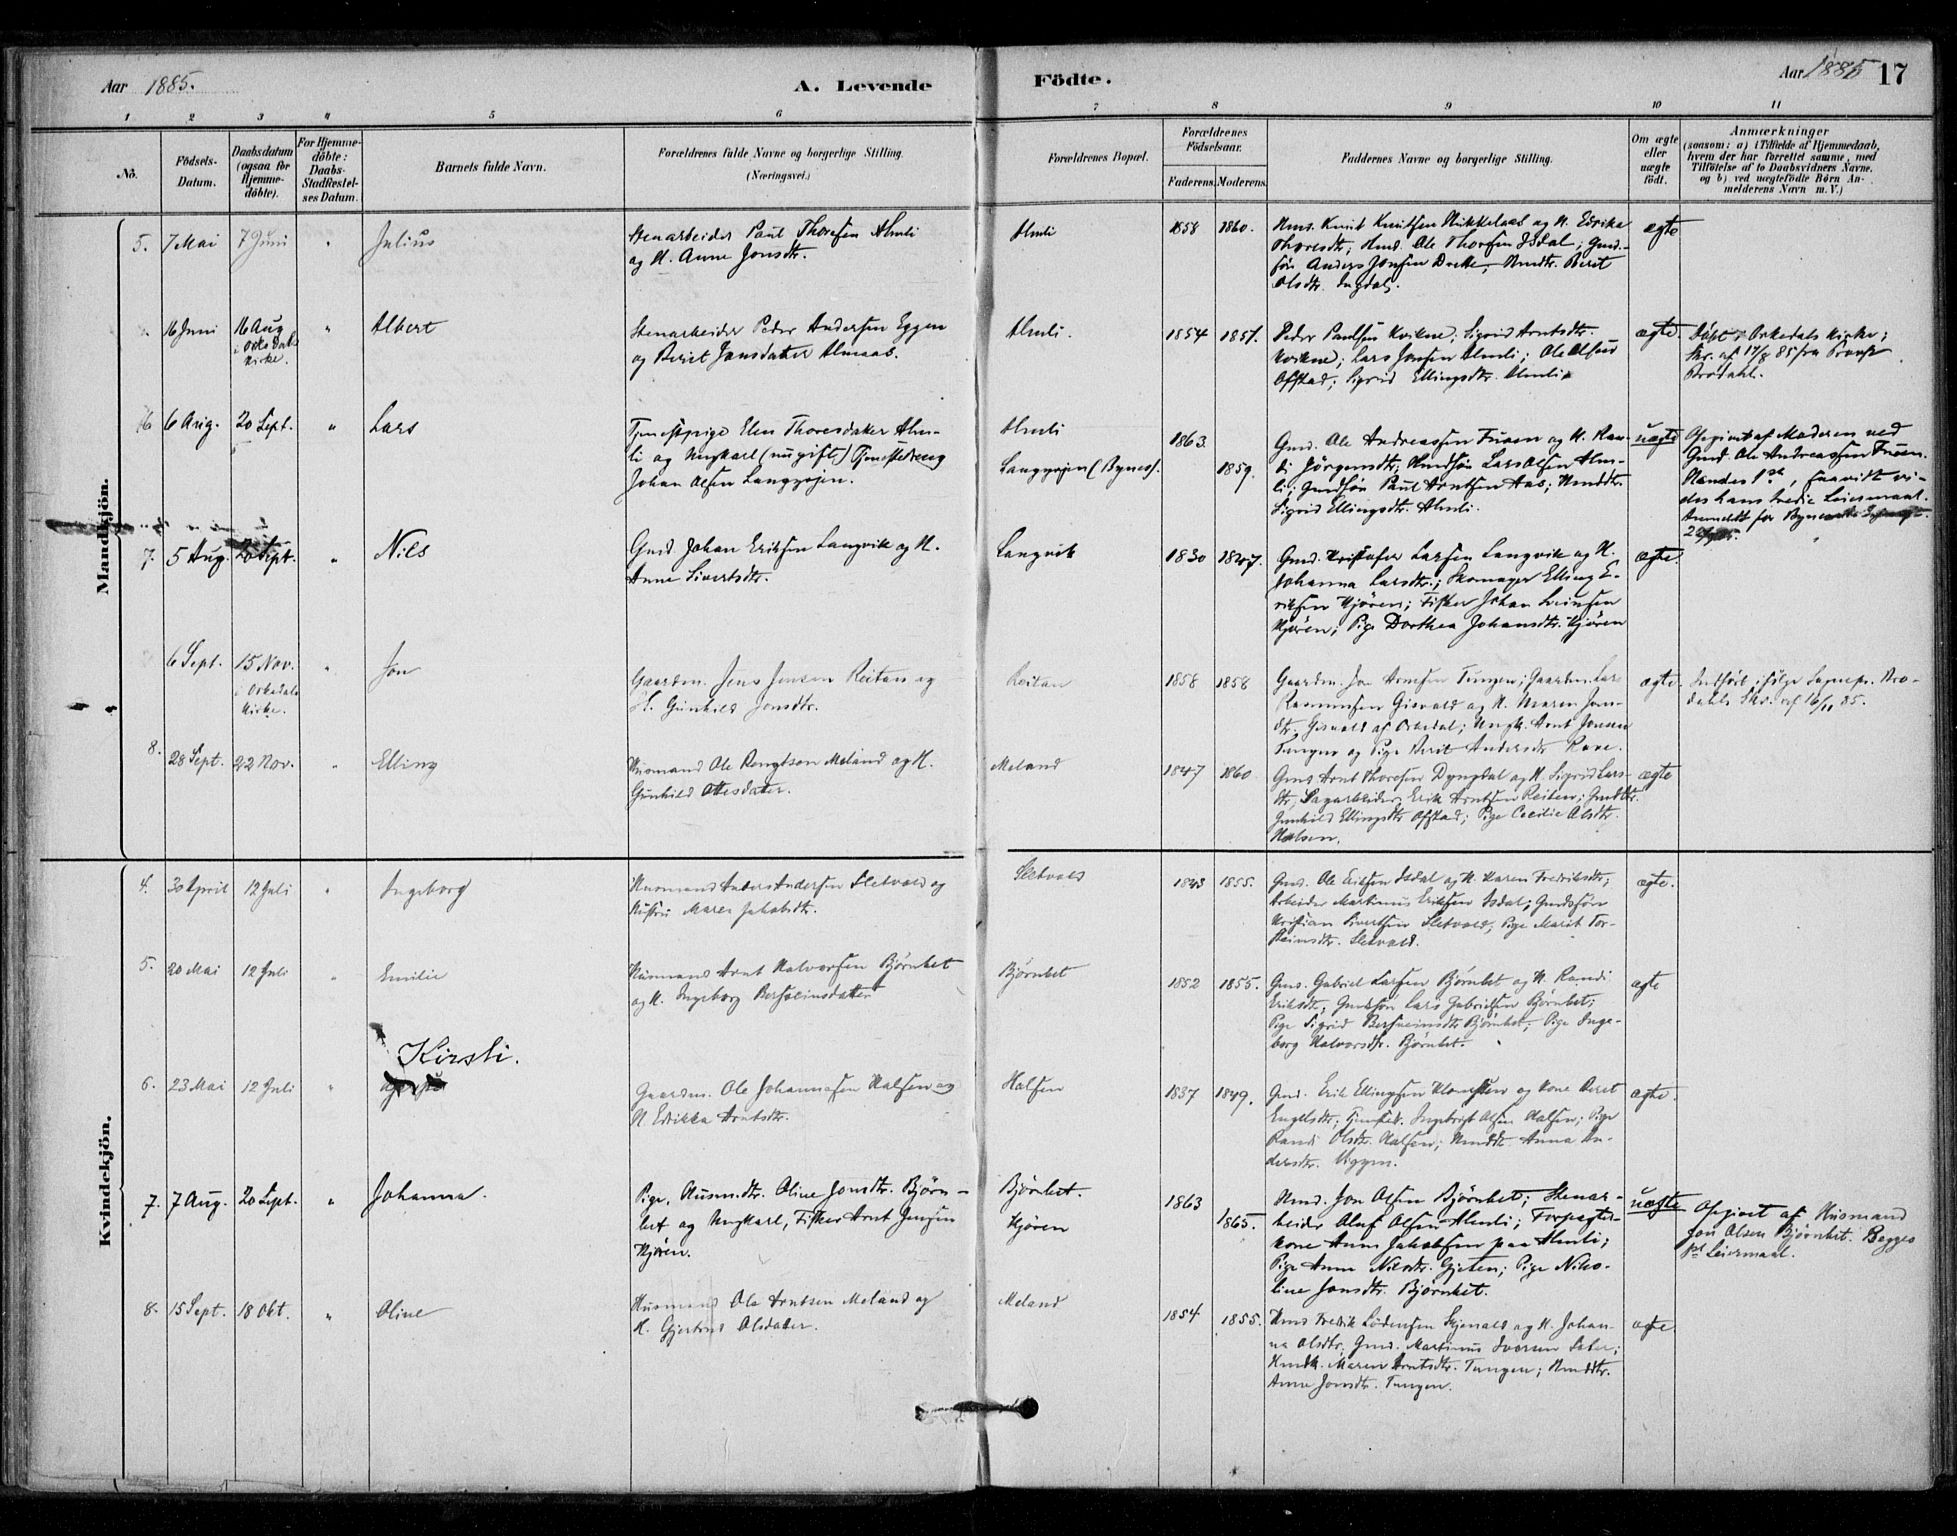 Aar 1885.
A. Levende
Födte.
Aar 1885
17
1 2 3 4 5 6 7 8 9 10 11
No.
Födsels-
Datum.
Daabsdatum
(ogsaa for
Hjemme-
döbte).
For Hjemme-
döbte:
Daabs-
Stadfæstel-
ses Datum.
Barnets fulde Navn.
Forældrenes fulde Navne og borgerlige Stilling.
(Næringsvei.)
Forældrenes Bopæl.
Forældrenes
Födselsaar.
Faderens. Moderens.
Faddernes Navne og borgerlige Stilling.
Om ægte
eller
uægte
født.
Anmærkninger
(saasom: a) i Tilfælde af Hjemmedaab,
hvem der har forrettet samme, med
Tilföielse af to Daabsvidners Navne.
og b) ved uægtefödte Børn An-
melderens Navn m. V.)
Mandkjön.
5. 7 Mai 7 Juni " Julius
Stenarbeider Paul Thoresen Almli
og H. Anne Jonsdtr.
Almli
1858 1860.
Hms. Knut Knutsen Mikkelaas og H. Edrika
Thoresdtr; Hmd. Ole Thorsen Isdal; Gmd.-
søn Anders Jonsen; Hmdtr. Beret
Olsdtr.
ægte
16 Juni 16 Aug
i Orkedals
Kirke.
" Albert
Stenarbeider Peder Andersen Eggen
og Beret Jonsdatter Almaas.
Almli.
1854 1851.
Peder Paulsen Kvikne; Sigrid Arntsdtr.
Kvikne; Lars Jonsen Almli; Ole Olsen
Ofstad; Sigrid Ellingsdtr. Almli
ægte
Döbt i Orkedals Kirke;
Skr. af 17/8 85 fra Provst
Brodahl.
6 6 Aug. 20 Sept. " Lars
Tjenestpige Elen Thoresdatter Alm-
li og Ungkarl (ungift) Tjenestedreng
Johan Olsen Langgsjen.
Almli
Langgsjen (Bynes).
1863
1859.
Gmd. Ole Andreassen Tuven og H. Ran-
di Jörgensdtr; Hmdsøn Lars Olsen Alm-
li; Gmdsøn Paul Arntsen Aas; Hmddtr.
Sigrid Ellingsdtr. Almli.
uægte
Opgivet af Moderen ved
Gmd. Ole Andreassen Tuven.
Hendes 1ste, saavidt vi-
des hans tredie Leiermaal.
Anmeldt for Bynesets
7. 5 Aug. 20 Sept. " Nils
Gmd Johan Eriksen Langvik og H.
Anne Sivertsdtr.
Langvik
1830 1847.
Gmd. Kristofer Larsen Langvik og H.
Johanna Larsdtr.; Skomager Elling E-
riksen Kjören; Fisker Johan Sveinsen
Kjören; Pige Dorthea Johansdtr. Kjören
ægte.
6 Sept. 15 Nov.
i Orkedals
Kirke.
" Jon
Gaardm. Jens Jonsen Reitan og
H. Gunhild Jonsdtr.
Reitan
1858 1858
Gaardm. Jon Arnesen Tungen; Gaardm. Lars
Rasmussen Gisvold og H. Maren Jons-
dtr. Gisvold af Orkedal; Ungk. Arnt Jonsen
Tungen og Pige Berit Andersdtr
ægte.
Indfört i følge Sognepr. Bro-
dahls Skr. af 16/11 85.
8. 28 Sept. 22 Nov. " Elling
Husmand Ole Bengtsen Meland og H.
Gunhild Ottesdatter.
Meland
1847 1860
Gmd Arnt Thoresen Dyngdal og H. Sigrid Lars-
dtr; Sagarbeider Erik Arntsen Reiten; Gmddtr.
Gunhild Ellingsdtr Ofstad; Pige Cecilie Olsdtr.
Halsen.
ægte
Kvindekjön.
4. 30 April 12 Juli " Ingeborg
Husmand Anders Andersen Sletvold og
Hustru Maren Jakobsdtr.
Sletvold
1843 1855.
Gmd. Ole Eriksen Isdal og H. Karen Fredriksdtr;
Arbeider Martinus Eriksen Isdal; Gmdssøn
Kristian Sivertsen Sletvold, Pige Marit Tor-
steinsdtr. Sletvold.
ægte.
5. 20 Mai 12 Juli " Emilie
Husmand Arnt Halvorsen Björnbet
og H. Ingeborg Bersveinsdatter
Björnbet
1852 1855.
Gmd. Gabriel Larsen Björnbet og H. Randi
Eriksdtr; Gmdsøn Lars Gabrielsen Björnbet;
Pige Sigrid Bersveinsdtr Björnbet; Pige Inge-
borg Halvorsdtr. Björnbet.
ægte
Kirsti.
6. 23 Mai 12 Juli "
Gaardm. Ole Johannesen Halsen og
H Edrikka Arntsdtr.
Halsen
1837 1849.
Gmd. Erik Ellingsen og Kone Beret
Engelsdtr; Ingebrigt Olsen Halsen; Pige
Randi Olsdtr. Halsen; Hmddtr Anna An-
dersdtr. Viggen.
ægte.
7. 7 Aug. 20 Sept. " Johanna.
Pige, Husm.dtr. Oline Jonsdtr. Björn-
bet og Ungkarl, Fisker Arnt Jensen
Kjören.
Björnbet.
Kjören
1863
1865.
Hmd. Jon Olsen Björnbet; Stenar-
beider Oluf Olsen Almli; Forpagter-
kone Anne Jakobsen paa Almli;
Pige Anne Nilsdtr. Gjeten; Pige Niko-
line Jonsdtr. Björnbet.
uægte
Opgivet af Husmand
Jon Olsen Björnbet. Begges
1ste Leiermaal.
8. 15 Sept. 18 Okt. " Oline
Husmand Ole Arntsen Meland og
H. Gjertrud Olsdatter.
Meland
1854 1855.
Hmd Fredrik Lödensen og H. Johan-
na Olsdtr; Gmd. Martinus Iversen
Hmdk. Maren Arntsdtr. Tungen; Hmddtr.
Anne Jonsdtr. Tungen.
ægte